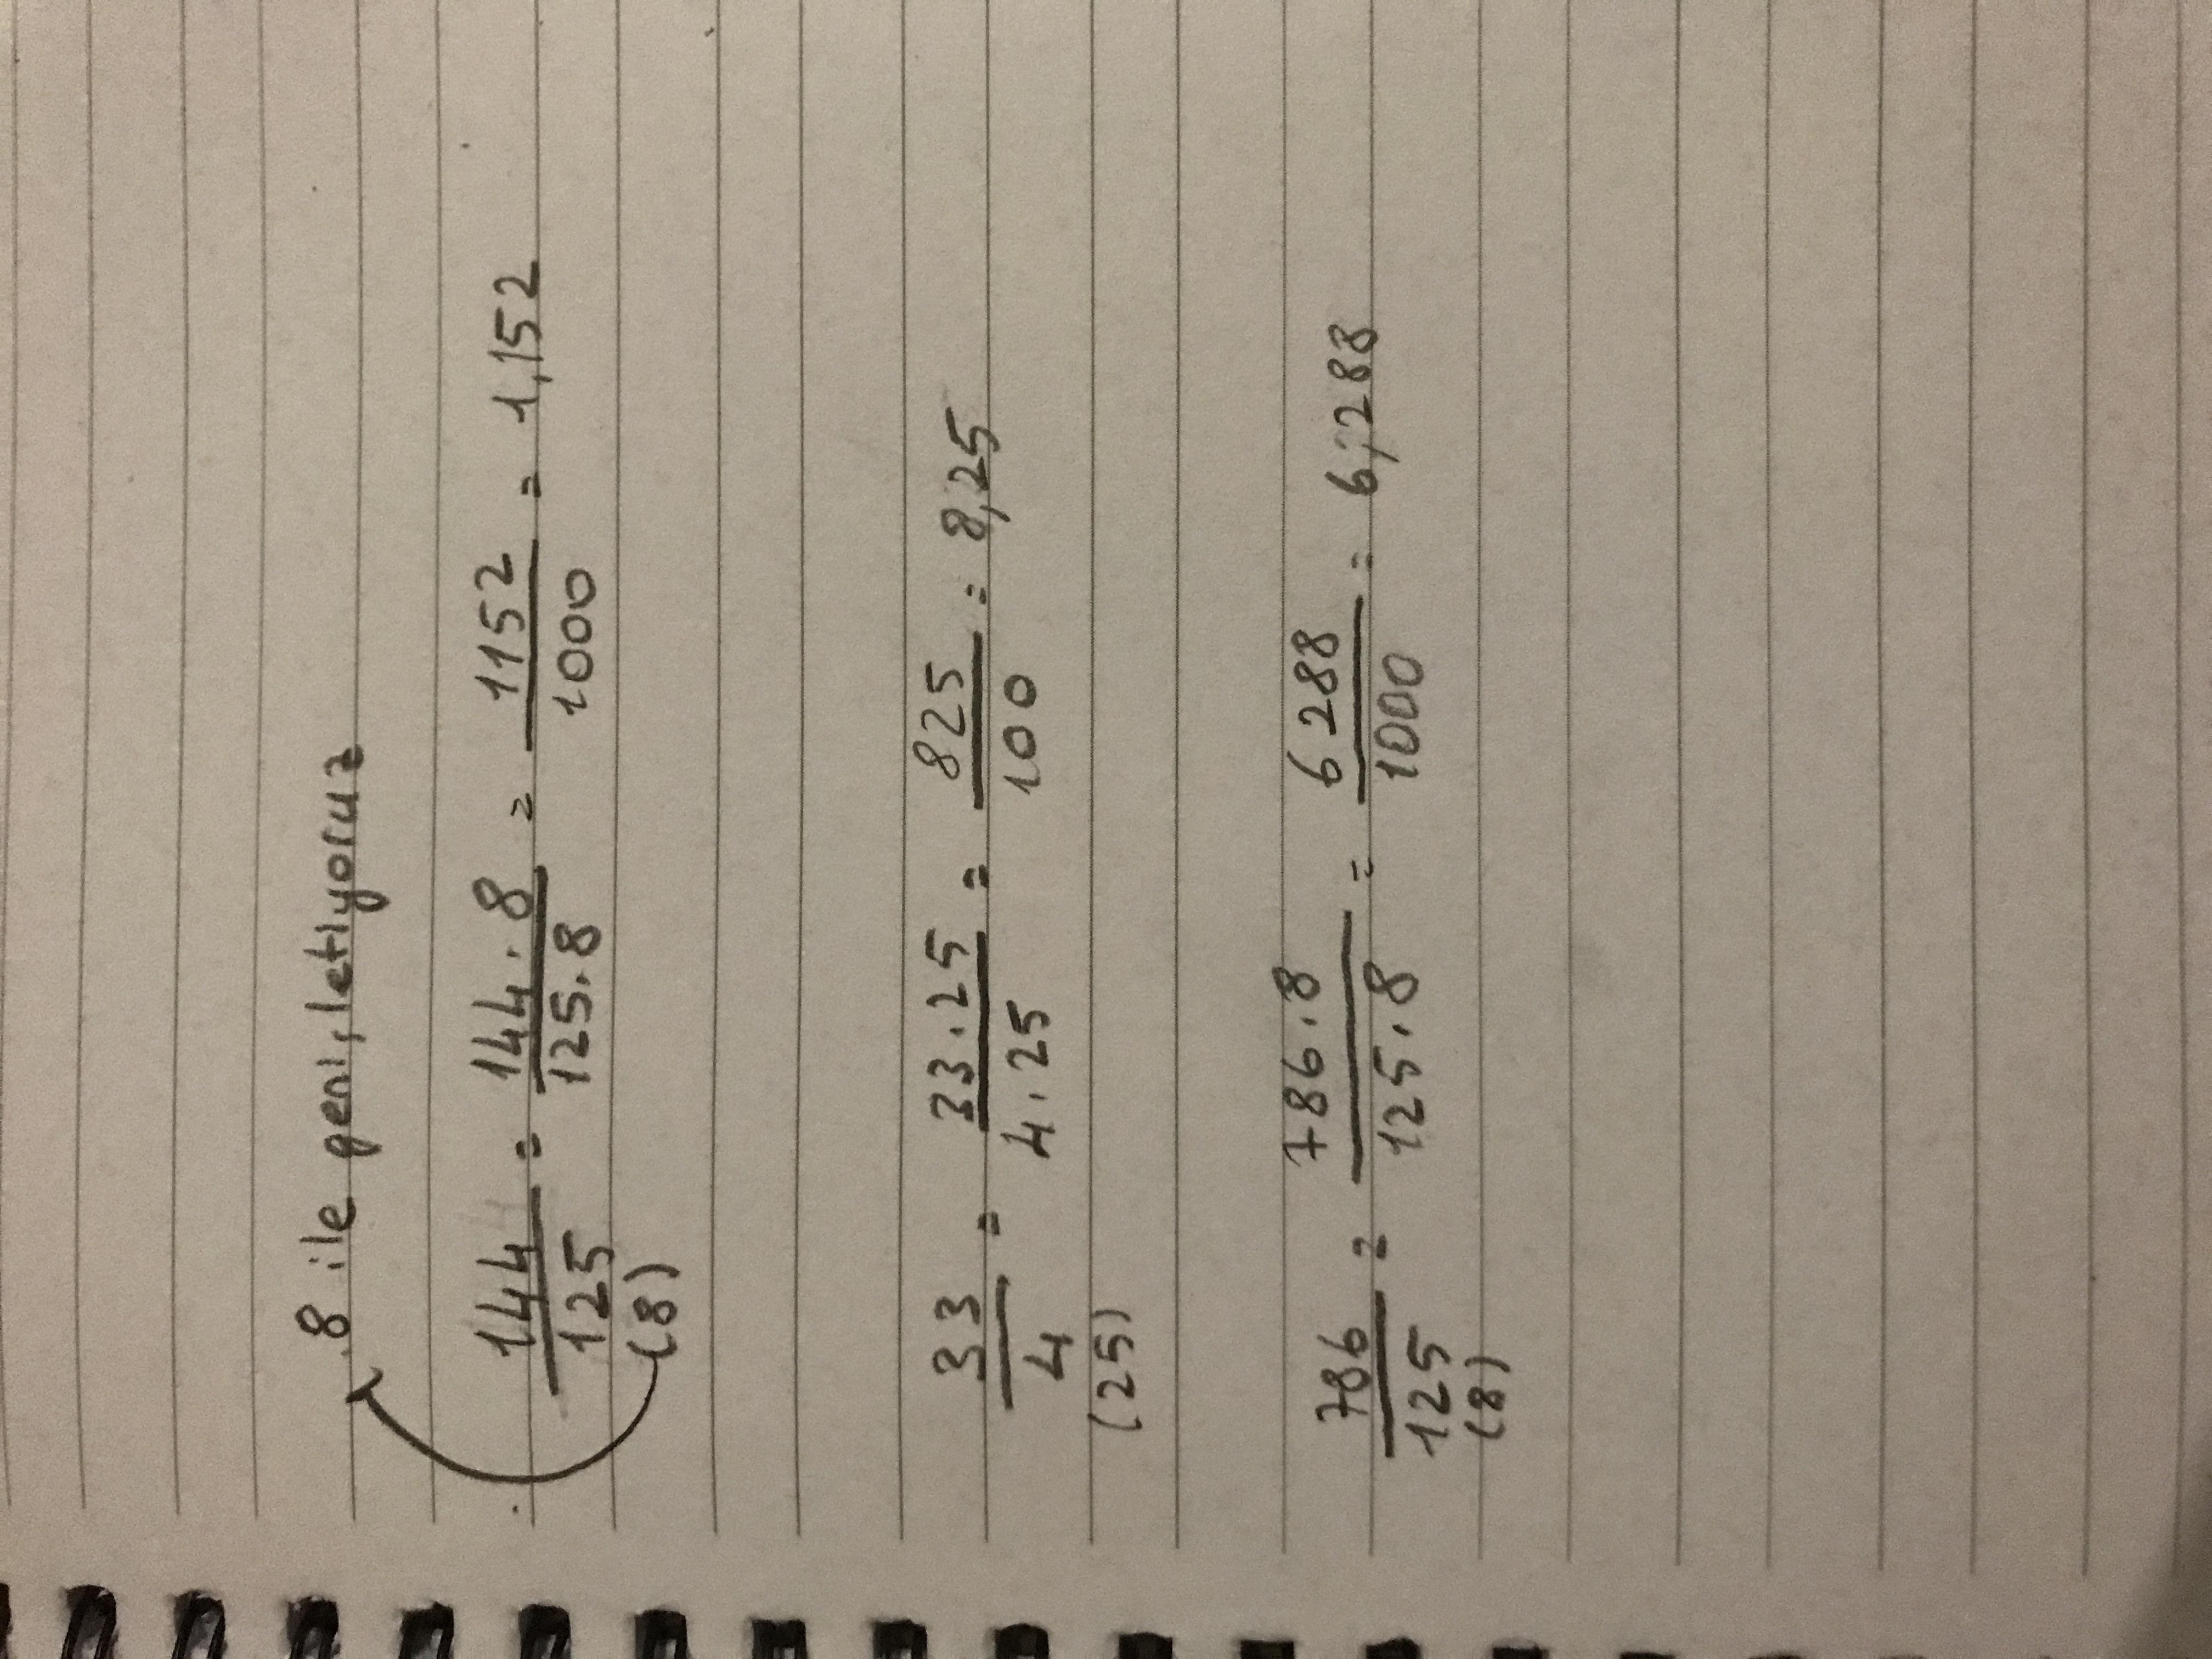 8 ile genişletiyoruz
144/125 = 144.8/125.8 = 1152/1000 = 1,152
(8)
33/4 = 33.25/4.25 = 825/100 = 8,25
(25)
786/125 = 786.8/125.8 = 6288/1000 = 6,288
(8)